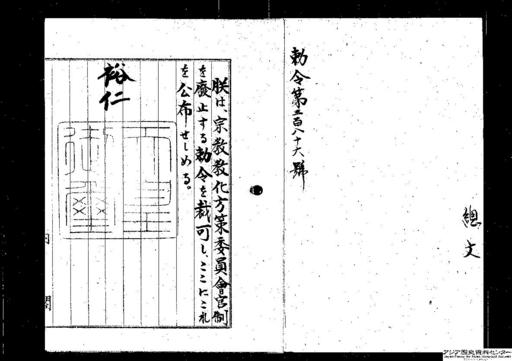 總 文
勅令第三百八十六號
朕は、宗教教化方策委員會官制
を廢止する勅令を裁可し、ここにこれ
を公布せしめる。
裕仁
天皇御璽
内 閣
アジア歴史資料センター